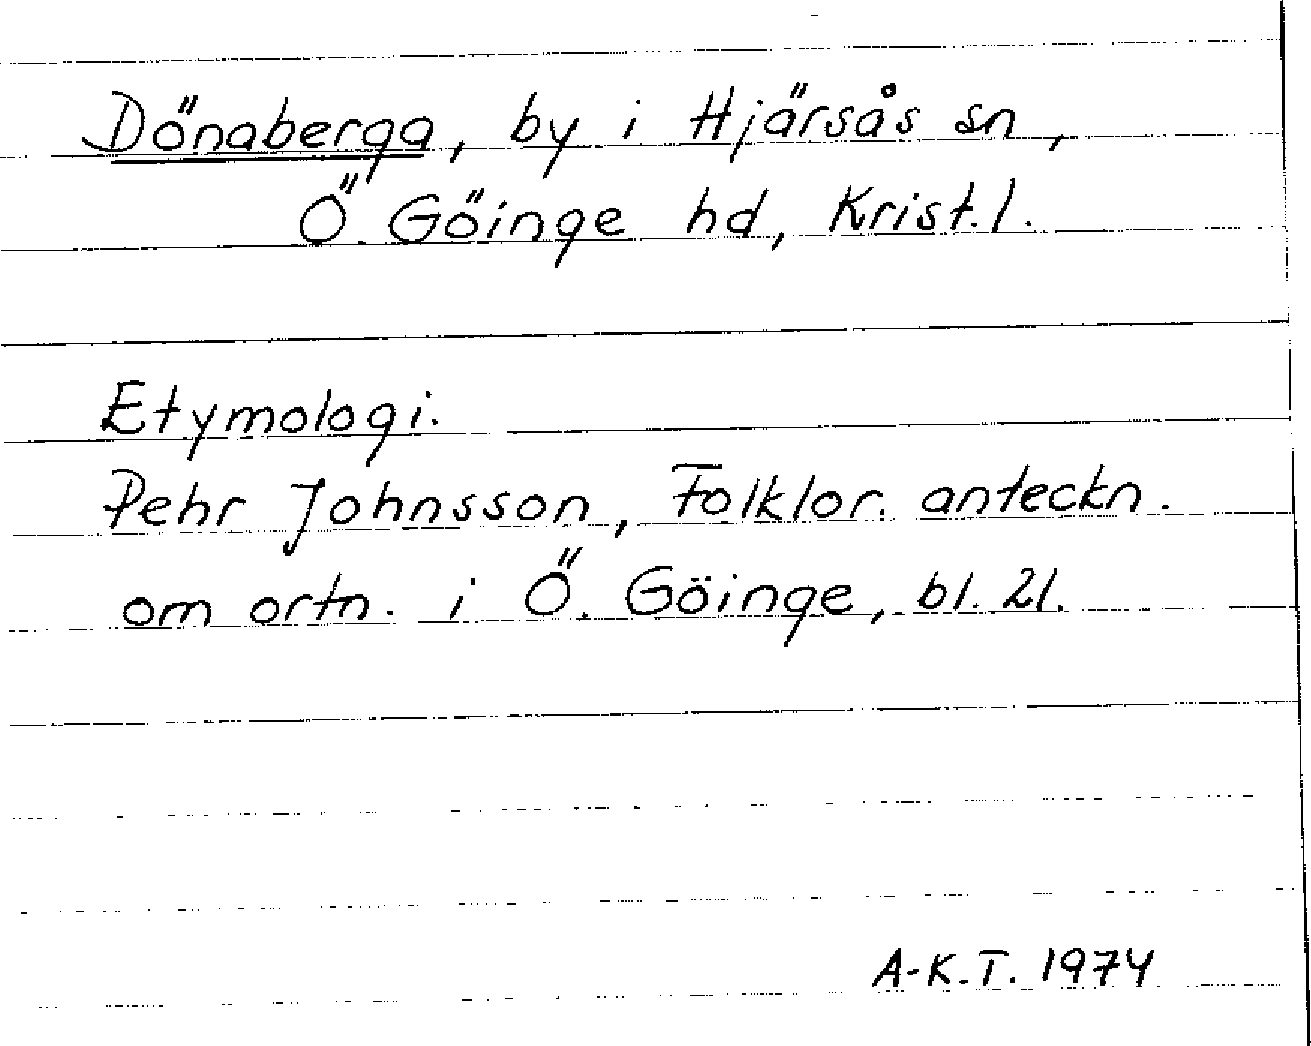 Dönaberga, by i Hjärsås sn,
Ö. Göinge hd, Krist. l.
Etymologi.
Pehr Johnsson, Folklor. anteckn.
om ortn. i Ö. Göinge, bl. 21.
A-K.T. 1974